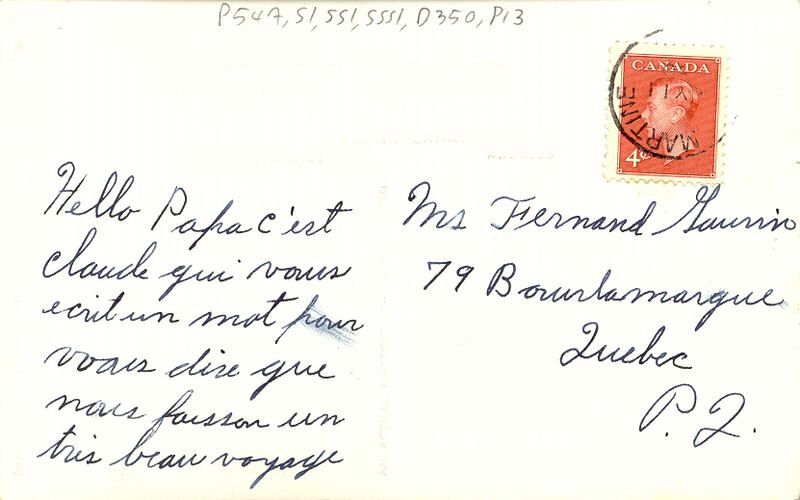 P547, S1, SS1, SSS1, D350, P13
CANADA
MARTINE
4¢
Hello Papa c'est
claude qui vous
ecrit un mot pour
vous dire que
nous faisson un
très beau voyage
Mr Fernand
79 Bourlamarque
Quebec
P.Q.